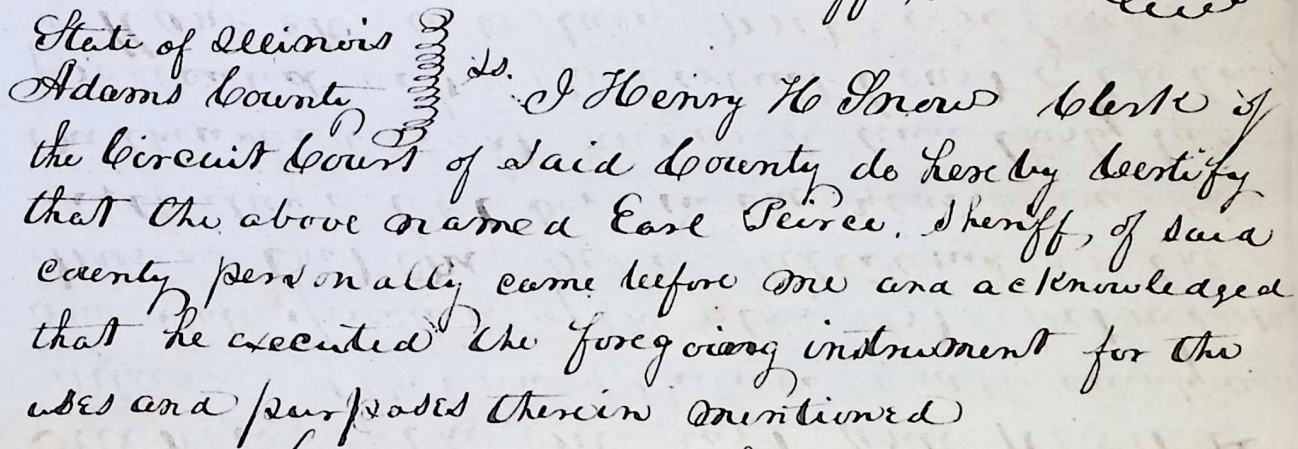 State of Illinois
Adams County ss. I Henry H Snow Clerk of
the Circuit Court of Said County do hereby Certify
that the above named Earl Peirce, Sheriff, of said
county personally came before me and acknowledged
that he executed the foregoing instrument for the
uses and purposes therein mentioned